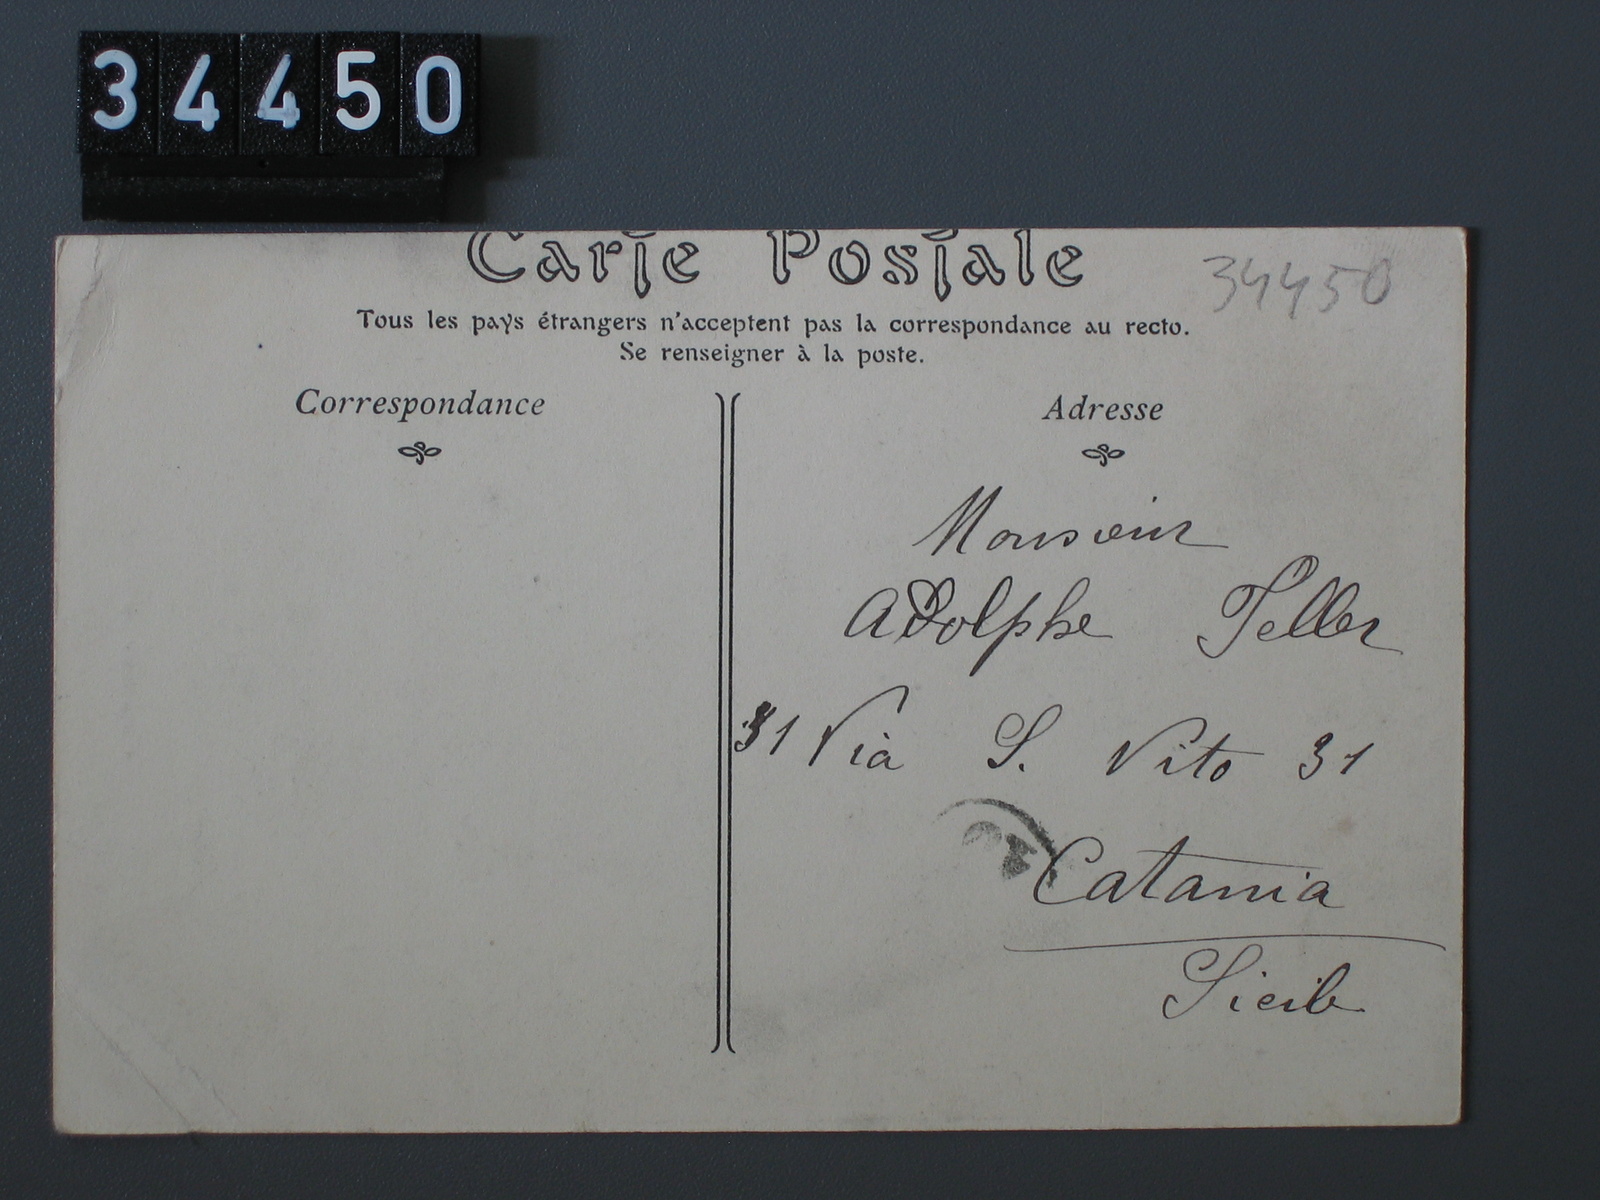 34450
Carte Postale
34450
Tous les pays étrangers n'acceptent pas la correspondance au recto.
Se renseigner à la poste.
Correspondance
Adresse
Monsieur
Adolphe Teller
31 Via S. Vito 31
Catania
Sicile